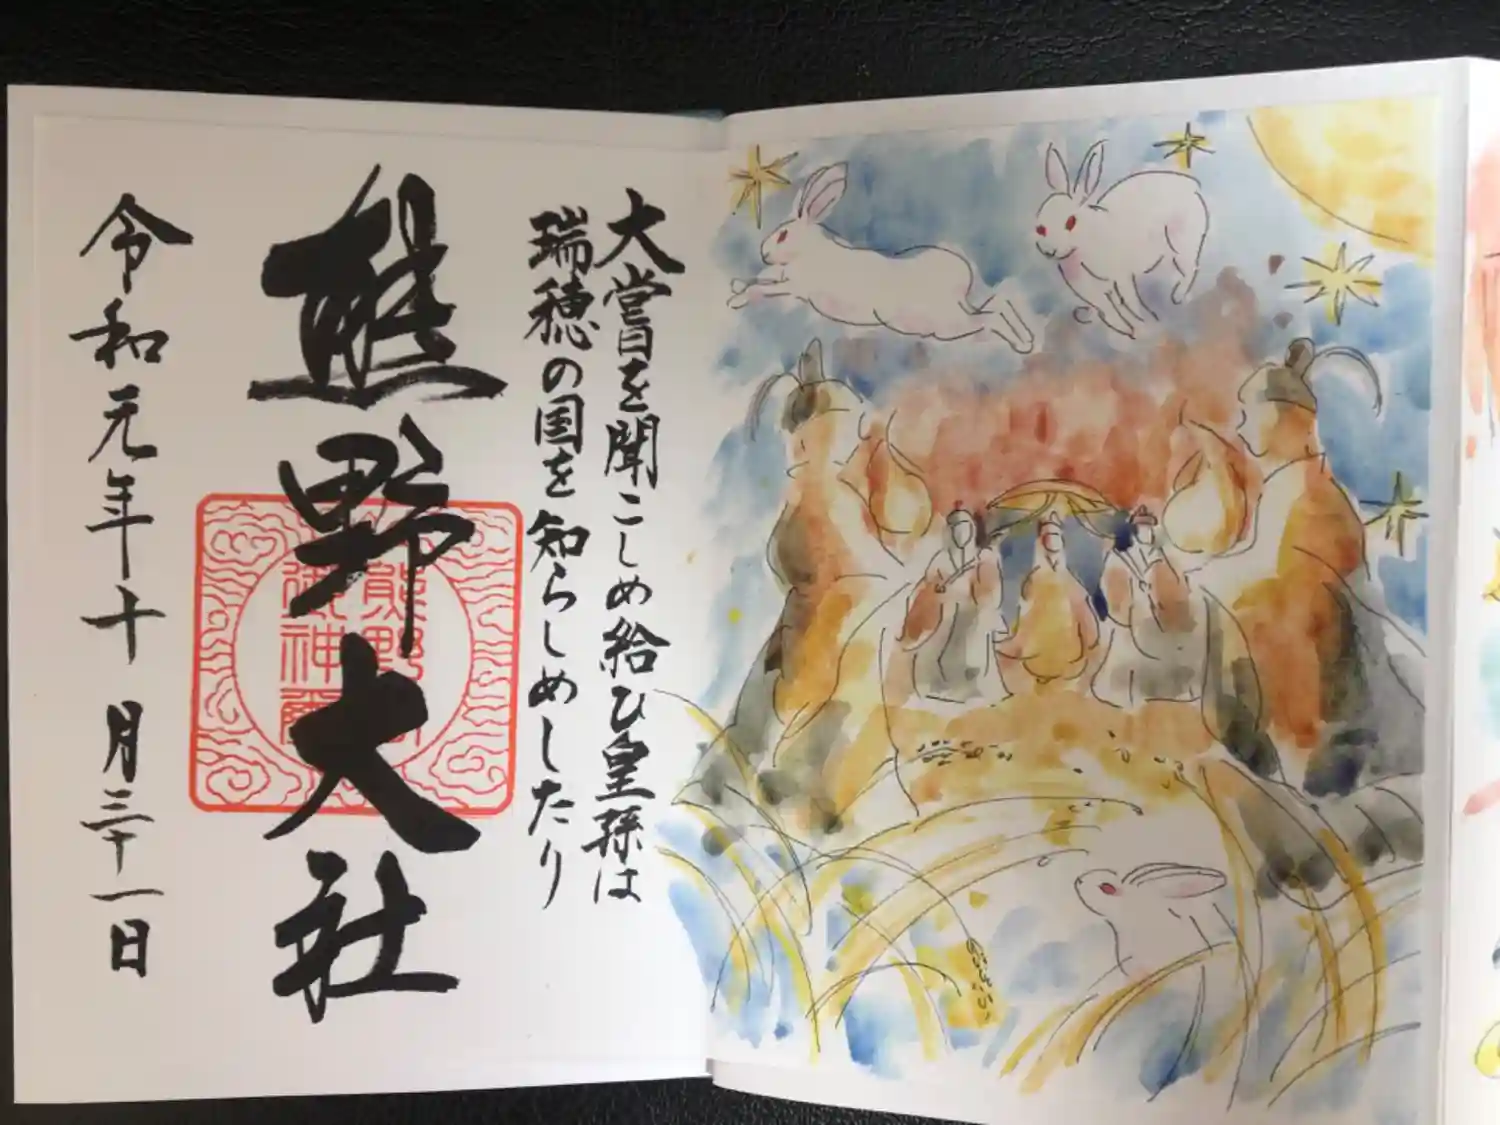 大嘗を聞こしめ給ひ皇孫は
瑞穂の国を知らしめしたり
熊野大社
令和元年十月三十一日